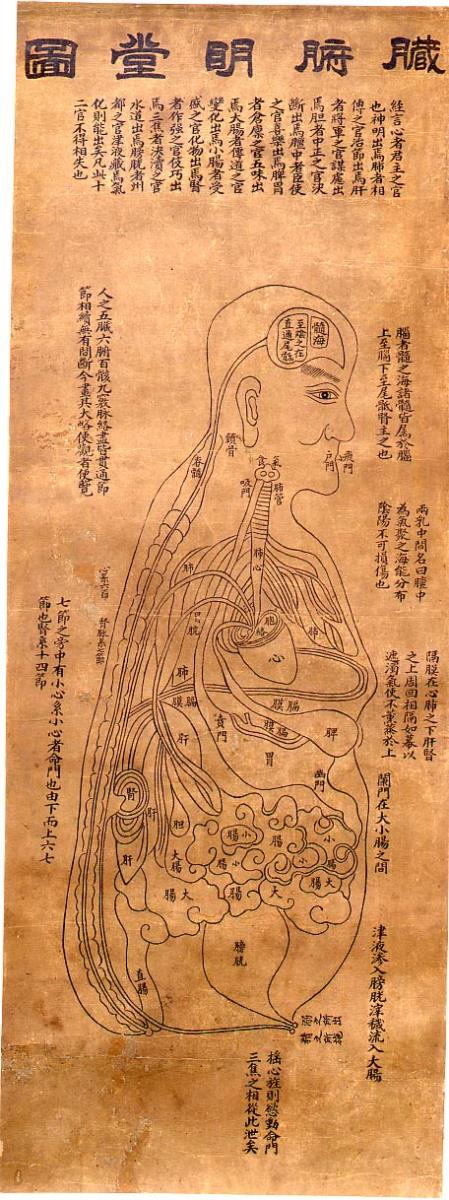 臟腑明堂圖
經言心者君主之官
也神明出焉肺者相
傅之官治節出焉肝
者將軍之官謀慮出
焉膽者中正之官決
斷出焉膻中者臣使
之官喜樂出焉脾胃
者倉廩之官五味出
焉大腸者傳道之官
變化出焉小腸者受
盛之官化物出焉腎
者作强之官伎巧出
焉三焦者決瀆之官
水道出焉膀胱者州
都之官津液藏焉氣
化則能出矣凡此十
二官不得相失也
腦者髓之海諸髓皆屬於腦
上至腦下至尾骶腎主之也
人之五臟六腑百骸九竅脉絡盡皆貫通節
節相續無有間斷今畫其大略使觀者便覽
髓海
至陰之在
直通尾骶
兩乳中間名曰膻中
為氣聚之海能分布
陰陽不可損傷也
隔膜在心肺之下肝腎
之上周回相隔如幕以
遮濁氣使不熏蒸於上
闌門在大小腸之間
津液滲入膀胱滓穢流入大腸
七節之旁中有小心系小心者命門也由下而上六七
節也腎系十四節
飛門
戶門
氣
食
肺管
吸門
肺
心
肺
肺
胞
絡
心
肺
膜
膈
膜
膈
脾
肝
賁門
胃
幽門
腎
肝
肝
胆
大腸
小腸
小腸
小腸
小腸
大腸
大腸
大腸
膀胱
直腸
搖心旌則慾動命門
三焦之相從此泄矣